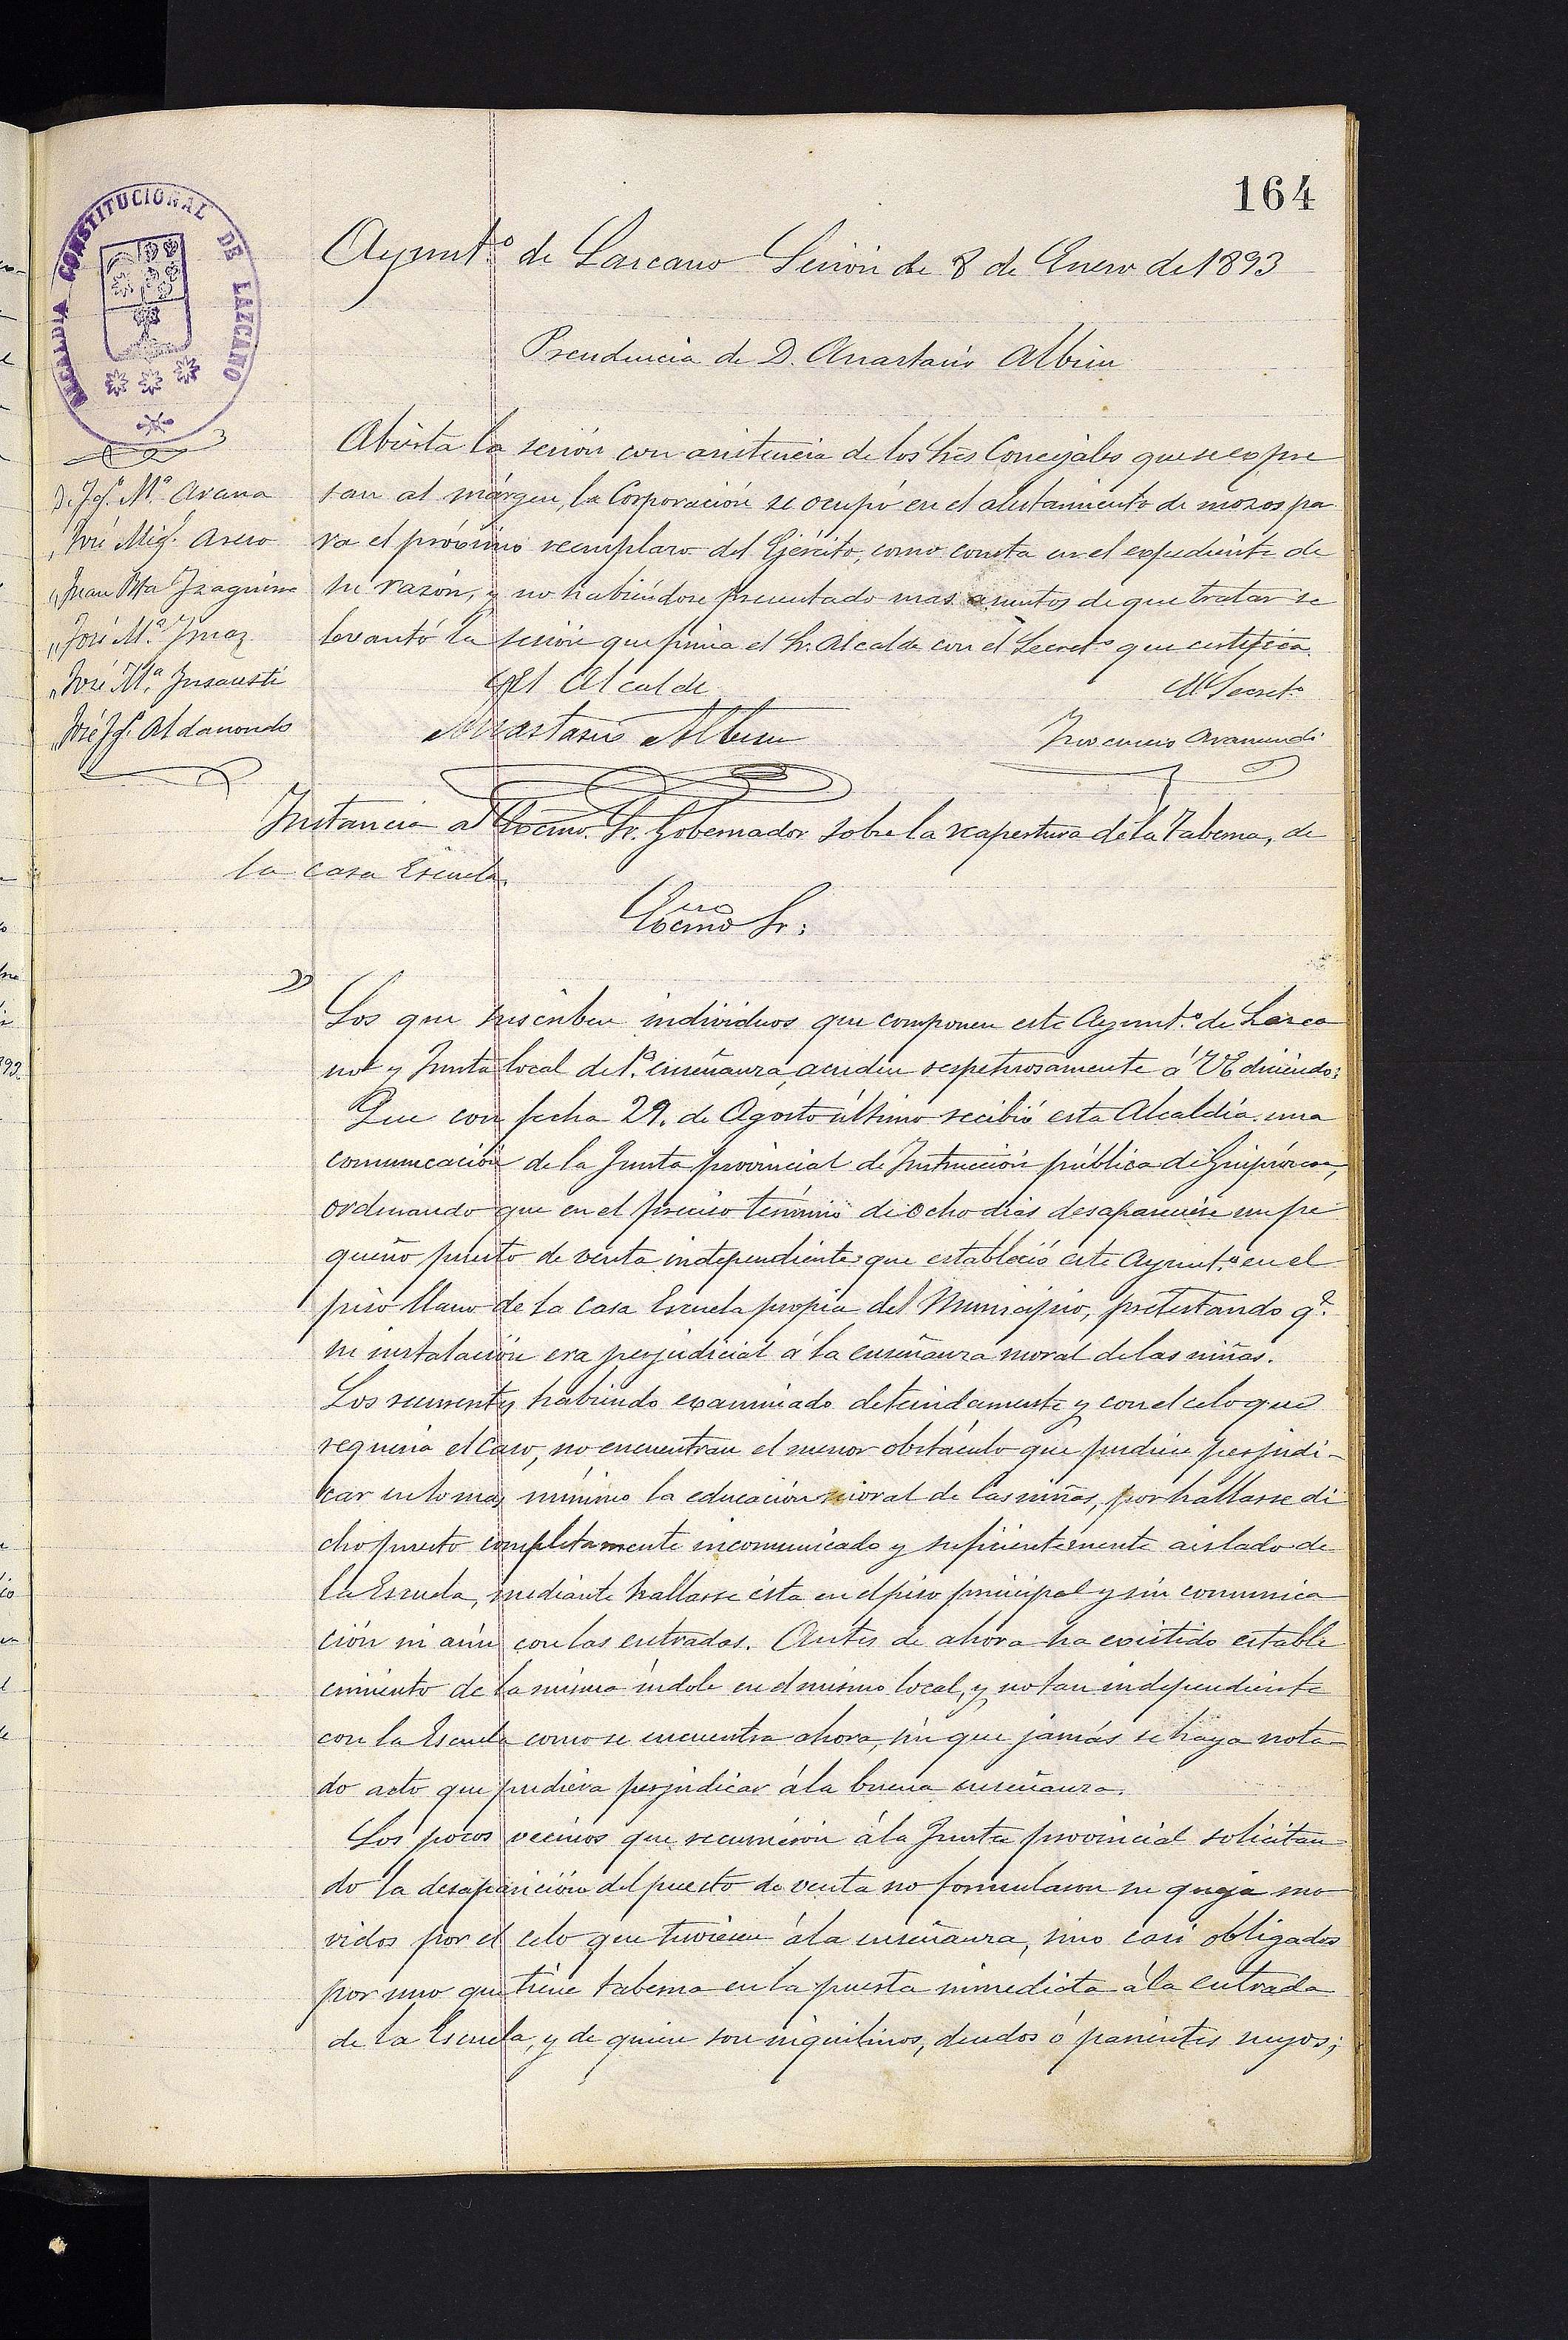 164
ALCALDIA CONSTITUCIONAL DE LAZCANO
Ayunt.º de Lazcano Sesión de 8 de Enero de 1893
Presidencia de D. Anastasio Albisu
D. Jph. M.ª Arana
" José Mig.l Asero
" Juan Bta Izaguirre
" José M.ª Imaz
" José M.ª Insausti
" José Jph. Aldanondo
Abierta la sesión con asistencia de los tres Concejales que se expre
san al márgen, la Corporación se ocupó en el alistamiento de mozos pa
ra el próximo reemplazo del Ejército, como consta en el expediente de
su razón, y no habiéndose presentado mas asuntos de que tratar se
levantó la sesión que firma el Sr. Alcalde con el Secret.º que certifica.
El Alcalde
El Secret.º
Anastasio Albisu
Inocencio Aramendi
Instancia al Excmo. Sr. Gobernador sobre la reapertura de la Taberna, de
la casa Escuela.
Excmo Sr:
Los que suscriben individuos que componen este Ayunt.º de Lazca
no y Junta local de 1.ª enseñanza, acuden respetuosamente á VE diciendo:
Que con fecha 29. de Agosto último recibió esta Alcaldía una
comunicación de la Junta provincial de Instrucción pública de Guipúzcoa,
ordenando que en el preciso término de ocho dias desapareciese un pe
queño puesto de venta independiente que estableció este Ayunt.º en el
piso llano de la casa Escuela propia del Municipio, pretestando q.e
su instalación era perjudicial á la enseñanza moral de las niñas.
Los recurrentes habiendo examinado detenidamente y con el celo que
requeria el caso, no encuentran el menor obstáculo que pudiese perjudi-
car en lo mas mínimo la educación moral de las niñas, por hallarse di
cho puesto completamente incomunicado y suficientemente aislado de
la Escuela, mediante hallarse ésta en el piso principal y sin comunica
ción ni aún con las entradas. Antes de ahora ha existido estable
cimiento de la misma índole en el mismo local, y no tan independiente
con la Escuela como se encuentra ahora, sin que jamás se haya nota
do acto que pudiera perjudicar á la buena enseñanza.
Los pocos vecinos que recurrieron á la Junta provincial solicitan
do la desaparición del puesto de venta no formularon su queja mo
vidos por el celo que tuviesen á la enseñanza, sino casi obligados
por uno que tiene taberna en la puerta inmediata á la entrada
de la Escuela, y de quien son inquilinos, deudos ó parientes suyos;